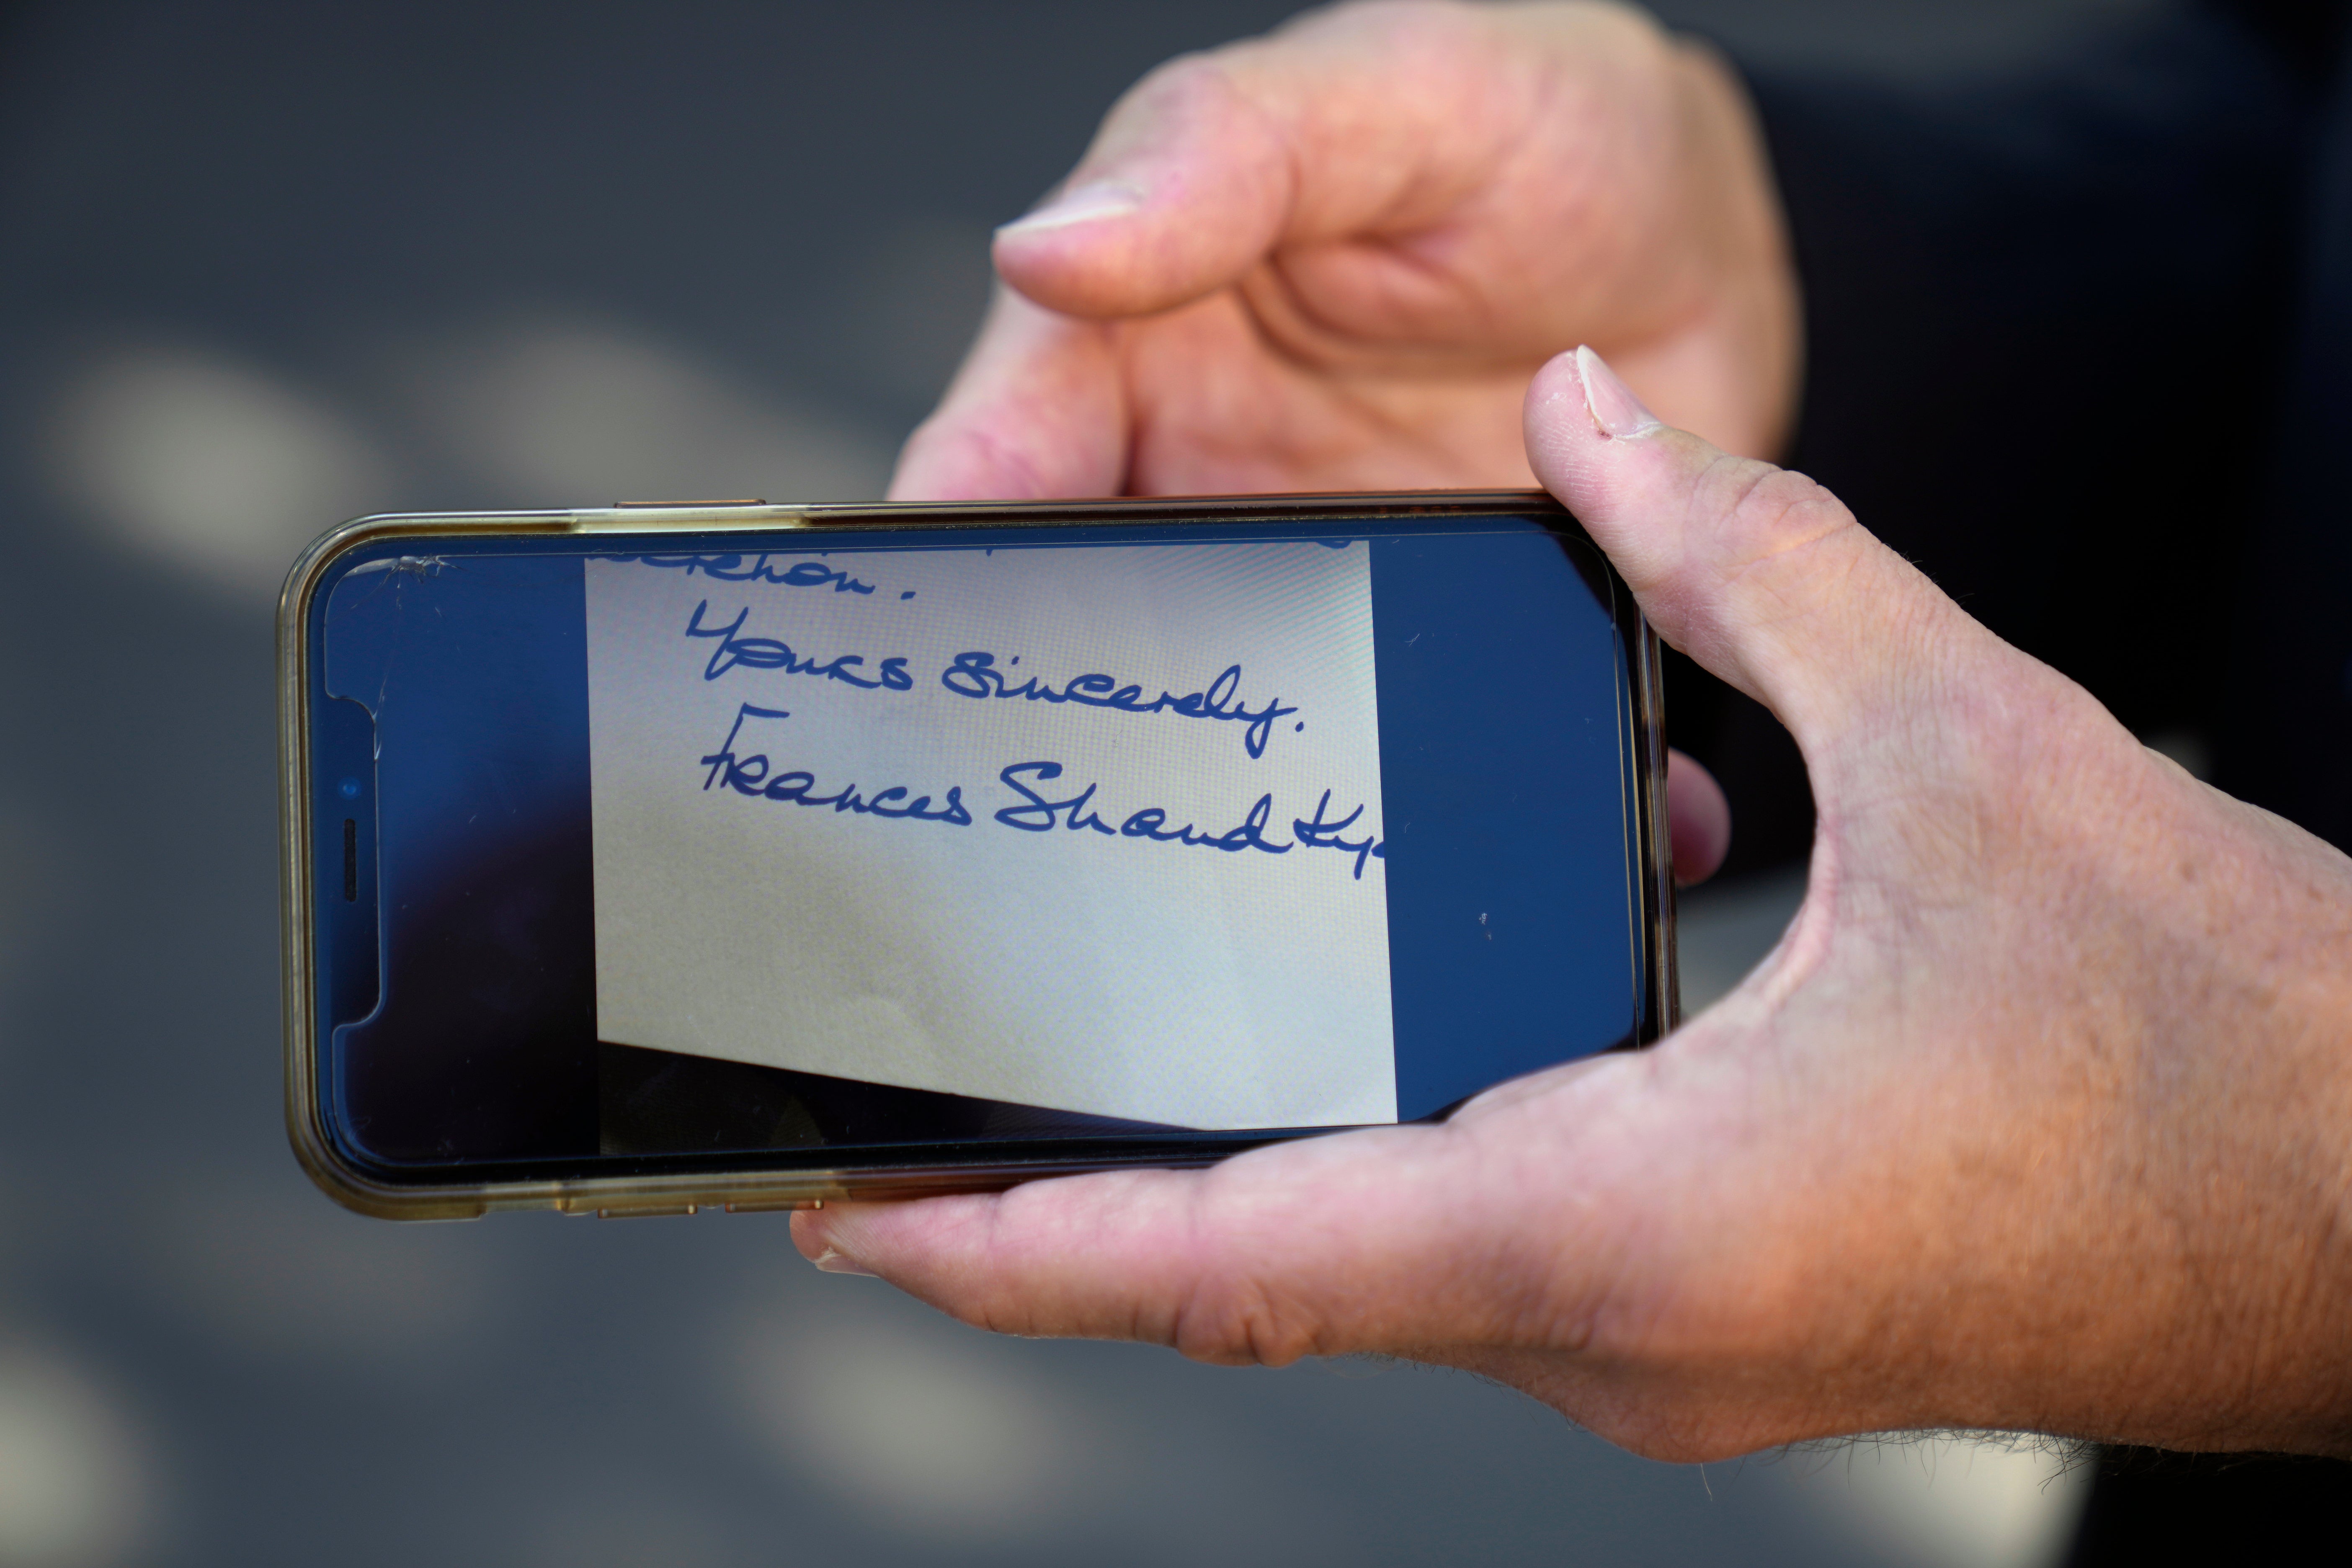 Yours sincerely.
Frances Shand Ky